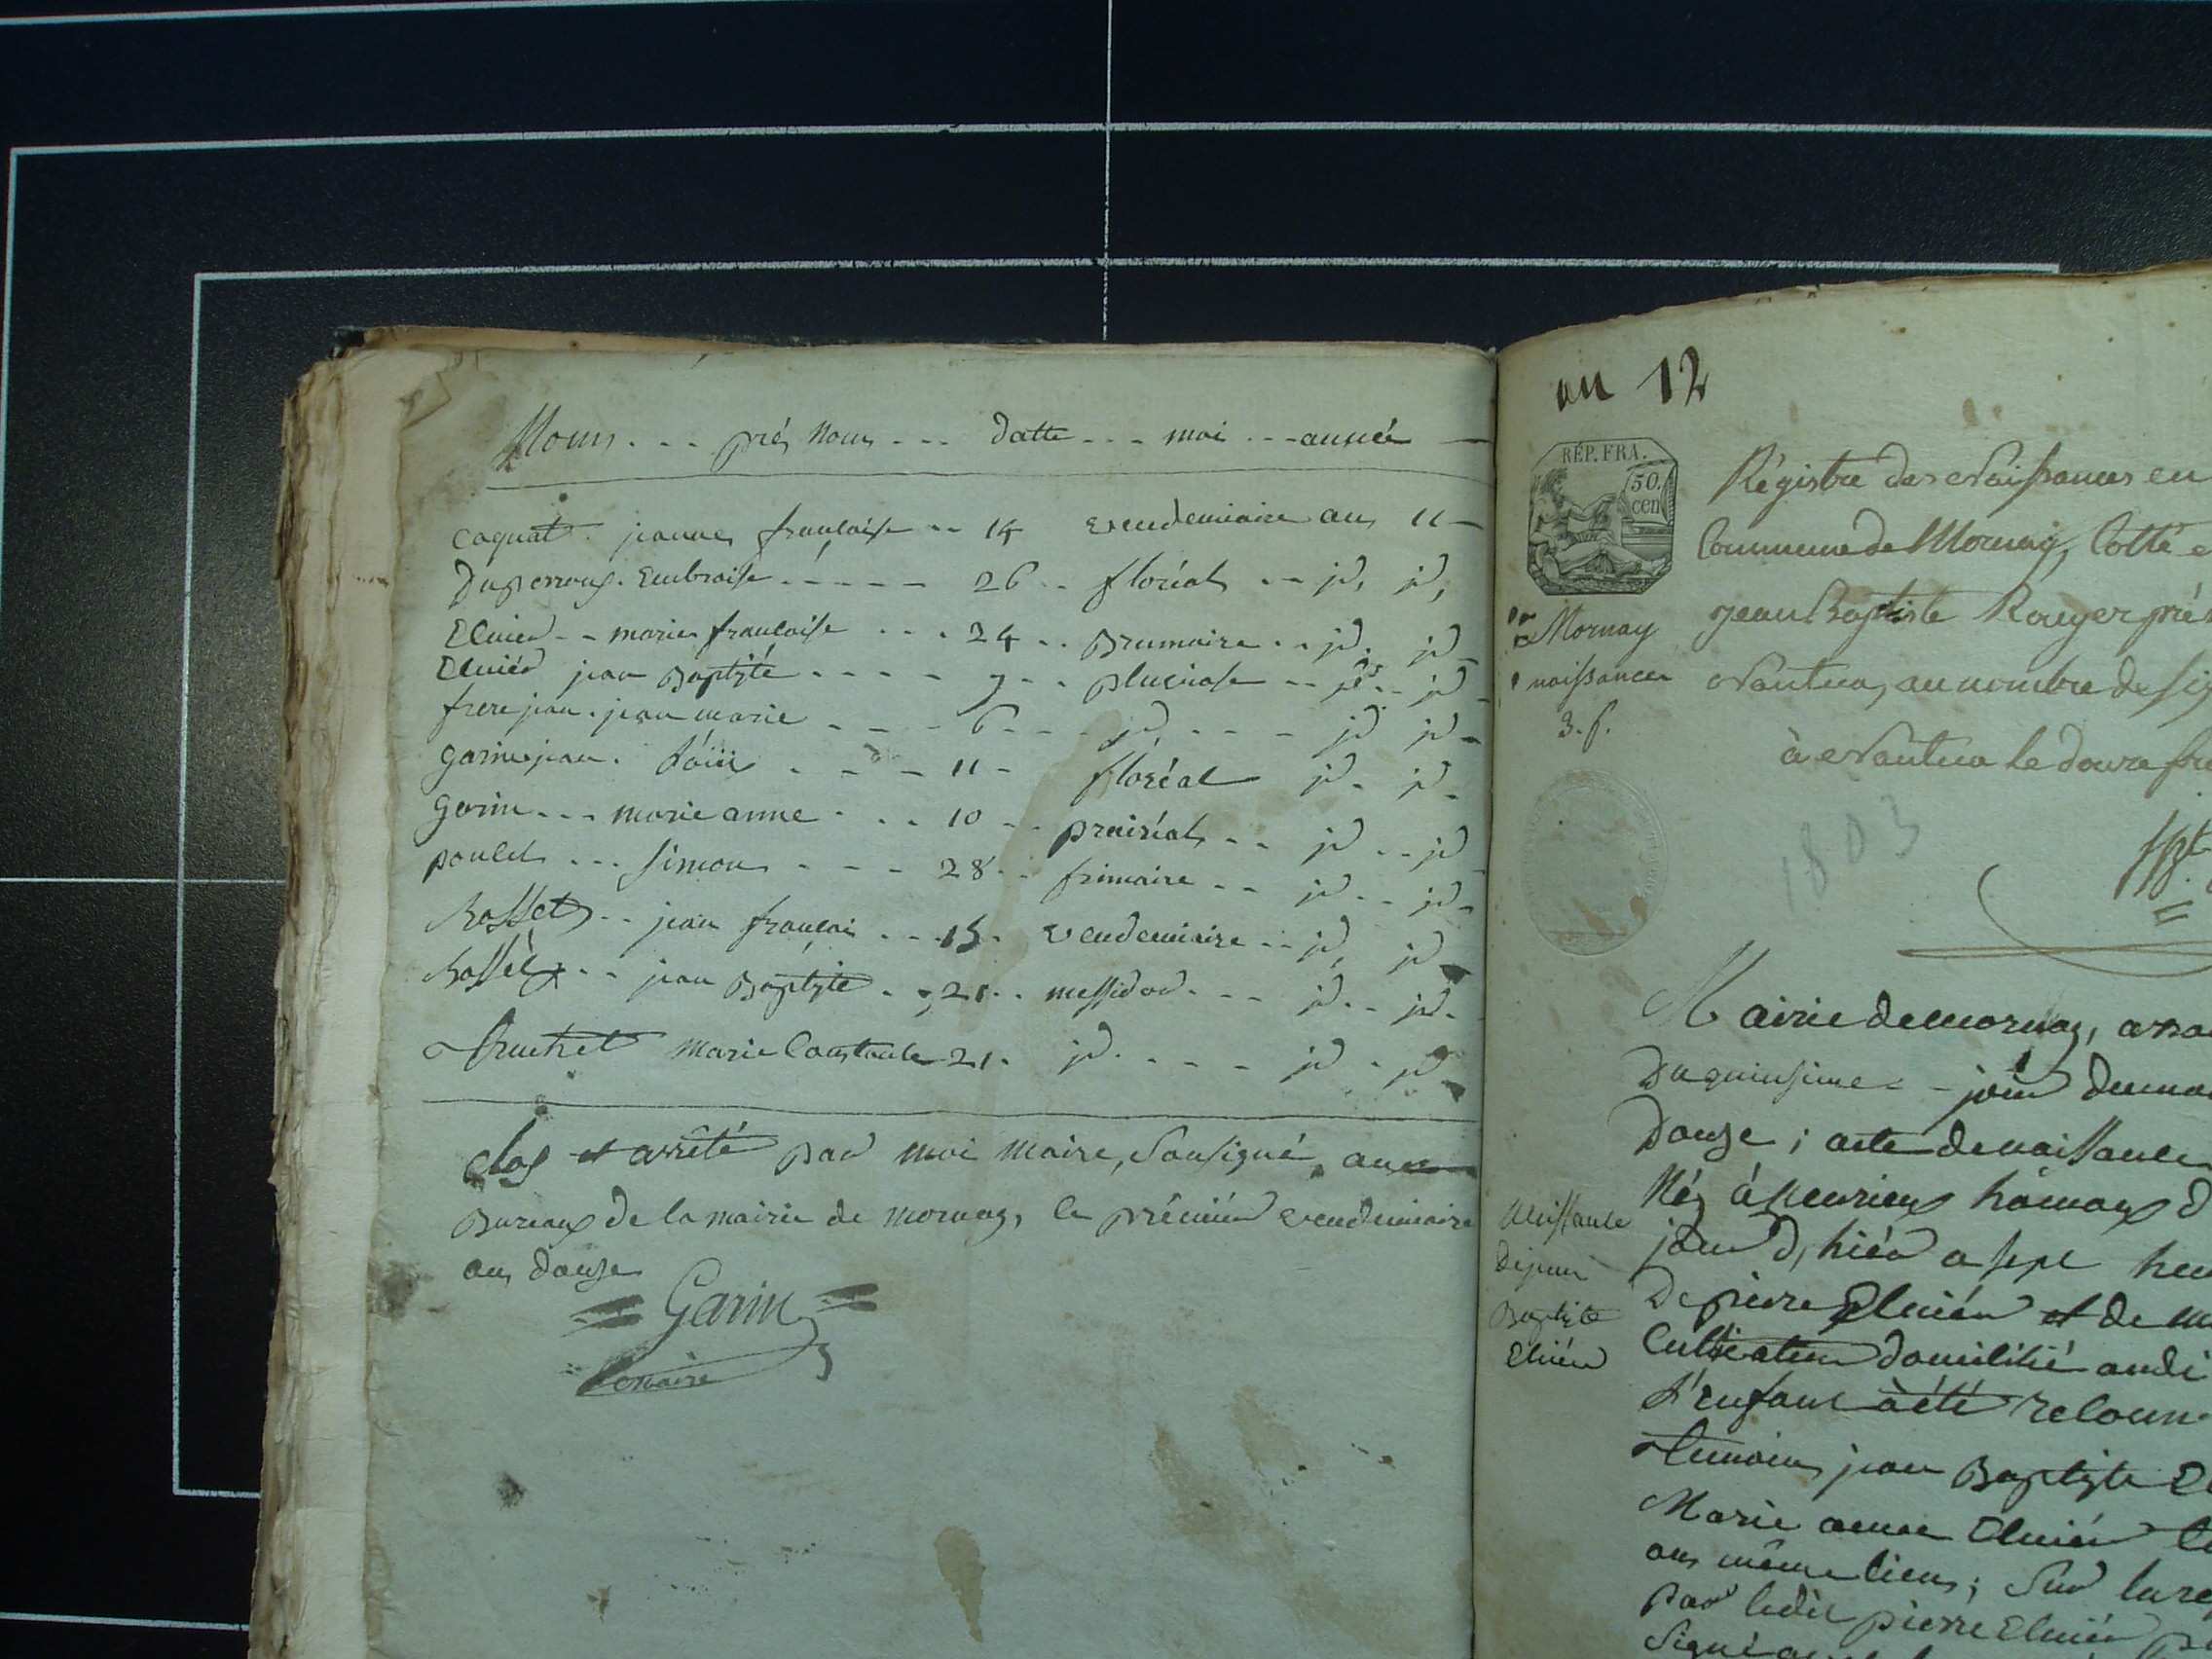 Noms . . . pré, noms . . . datte . . . moi . . . année
coquat . jeanne françoise . . 14 vendemiaire an 11
Duperroux . Embroise . . . . . 26 . . floréal . . jd, jd,
Elnied . . marie françoise . . . 24 . . Brumaire . . jd. jd
Elniéd jean Baptiste . . . . . 9 . . pluviose . . jd . . jd
frere jean . jean marie . . . . 6 . . . jd . . . . jd jd
Garin jean . . . . 11 . floréal jd . jd .
Garin . . . marie anne . . . 10 . . prairial . . jd . . jd
poulet . . . Simon . . . . 28 . . frimaire . . jd . . jd
Rosset . . jean françoi . . . 15 . vendemiaire . . jd, jd
Rosset . . jean Baptiste . . 21 . . messidod . . . jd . . jd .
truchet marie Constante 21 . jd . . . . jd . jd
clos et arrêté pad moi maire, Sousigné, au
Bureaux de la mairie de mornay, le prémiéd vendemiaire
an douze
Garin
maire
an 12
RÉP. FRA.
50.
cen
Mornay
naissances
3. f.
Régistre des Naissances en
Commune de Mornay, Cotté
jean Baptiste Rouyer pré
Nantua, au nombre de si
à Nantua le douze fr
1803
Mairie de mornay, arro
Du quinsime - jour du mo
Douze ; acte de naissance
Néz á
jour d, hiéd a sept heu
De pierre Elniéd et de m
Cultivateur domilitié audi
L'enfant à été reconn
temoins jean Baptiste El
Marie anne Elniéd
au même lieu ; Sud la re
Pad ledit pierre Elniéd
Signé
Naissance
De jean
Baptiste
Elniéd